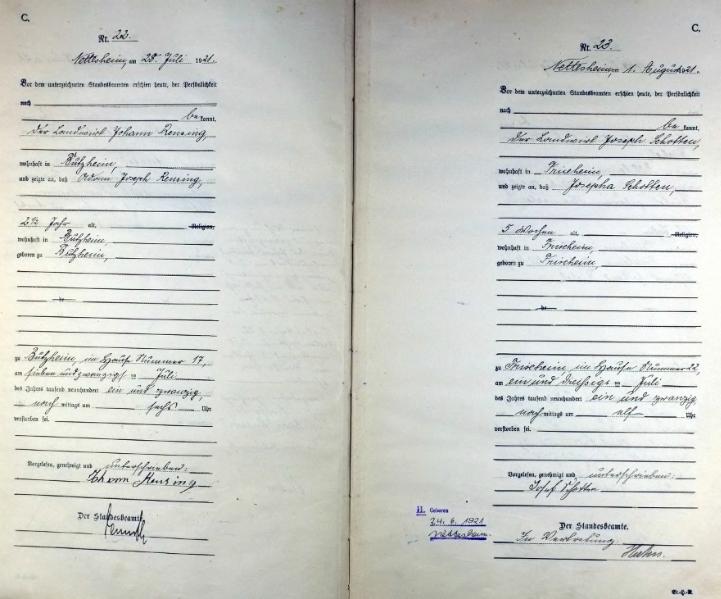 C.
Nr. 22.
Nettesheim, am 28. Juli 1921.
Vor dem unterzeichneten Standesbeamten erschien heute, der Persönlichkeit
nach
bekannt,
der Landwirt Johann Rensing,
wohnhaft in Butzheim,
und zeigte an, daß Adam Joseph Rensing,
2½ Jahr alt, Religion,
wohnhaft in Butzheim,
geboren zu Butzheim,
zu Butzheim, im Hause Nummer 17,
am sieben und zwanzigsten Juli
des Jahres tausend neunhundert ein und zwanzig,
nach mittags um sechs Uhr
verstorben sei.
Vorgelesen, genehmigt und unterschrieben:
Johann Rensing
Der Standesbeamte.
C.
Nr. 23.
Nettesheim, 1. August 21.
Vor dem unterzeichneten Standesbeamten erschien heute, der Persönlichkeit
nach
bekannt,
der Landwirt Joseph Schotten,
wohnhaft in Frixheim,
und zeigte an, daß Josepha Schotten,
5 Wochen alt, Religion,
wohnhaft in Frixheim,
geboren zu Frixheim,
zu Frixheim im Hause Nummer 22,
am ein und dreissigsten Juli
des Jahres tausend neunhundert ein und zwanzig
nach mittags um elf Uhr
verstorben sei.
Vorgelesen, genehmigt und unterschrieben:
Josef Schotten
II. Geboren
24. 6. 1921
Nettesheim
Der Standesbeamte.
In Vertretung:
Hahn.